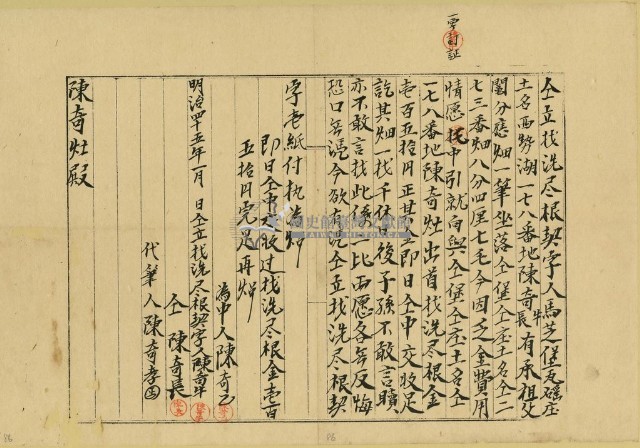 一字訂証
仝立找洗尽根契字人馬芝堡瓦磘庄
土名西勢湖一七八番地陳奇牛長有承祖父
鬮分應畑一筆坐落仝堡仝庄土名仝二
七三番畑八分四厘七毛今因乏金費用
情愿托中引就向與仝堡仝庄土名仝
一七八番地陳奇灶出首找洗尽根金
壱百五拾円正其金即日仝中交收足
訖其畑一找千休後子孫不敢言贖
亦不敢言找此係二比両愿各無反悔
恐口無憑今欲有洗仝立找洗尽根契
字壱紙付执為炤
即日仝中交收过找洗尽根金壱百
五拾円完足再炤
為中人陳奇
明治四十五年一月 日仝立找洗尽根契字人陳奇牛
仝 陳奇長
代筆人陳奇
陳奇灶殿
國史館臺灣文獻館
TAIWAN HISTORICA
86
86